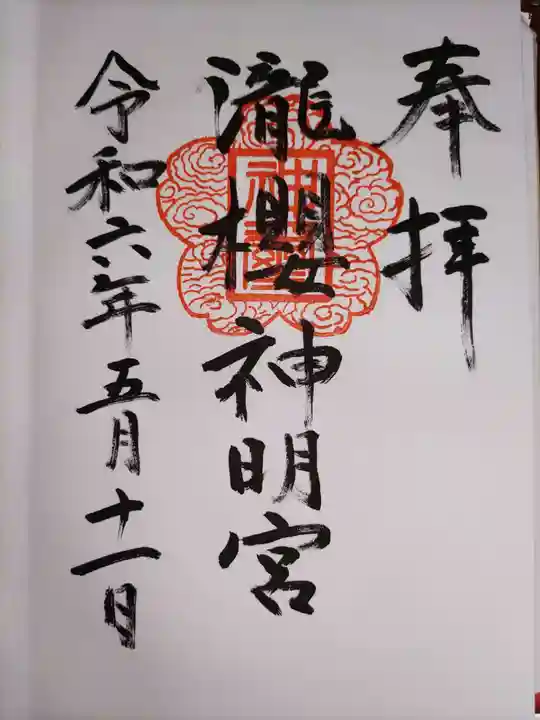 奉拝
瀧櫻神明宮
令和六年五月十一日